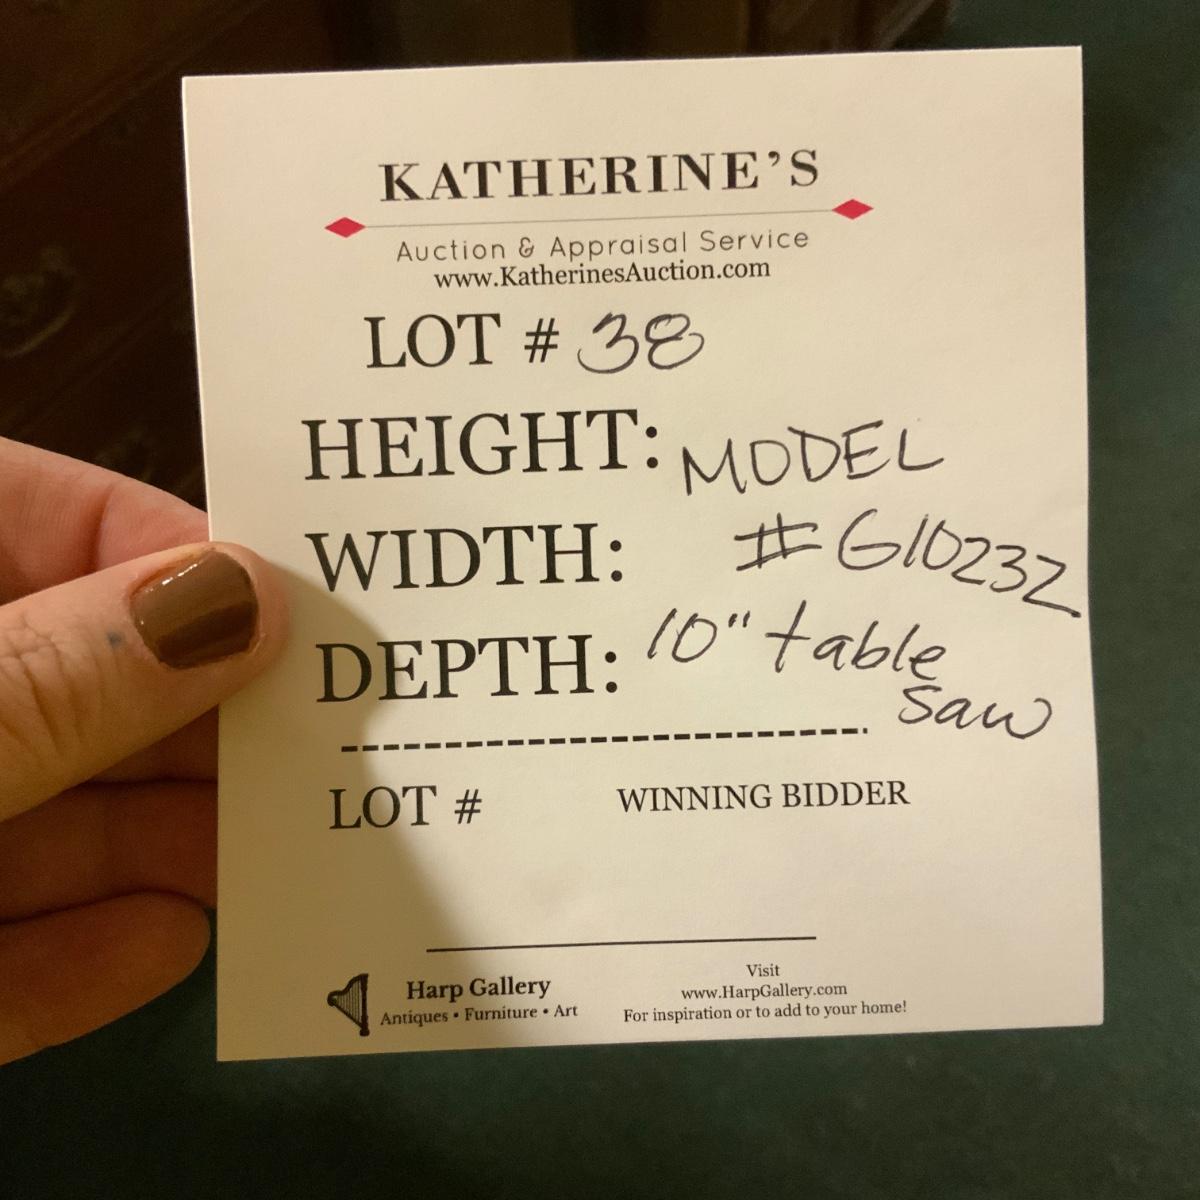 KATHERINE'S
Auction & Appraisal Service
www.KatherinesAuction.com
LOT # 38
HEIGHT: MODEL
WIDTH: #G1023Z
DEPTH: 10" table
saw
LOT # WINNING BIDDER
Harp Gallery
Antiques • Furniture • Art
Visit
www.HarpGallery.com
For inspiration or to add to your home!